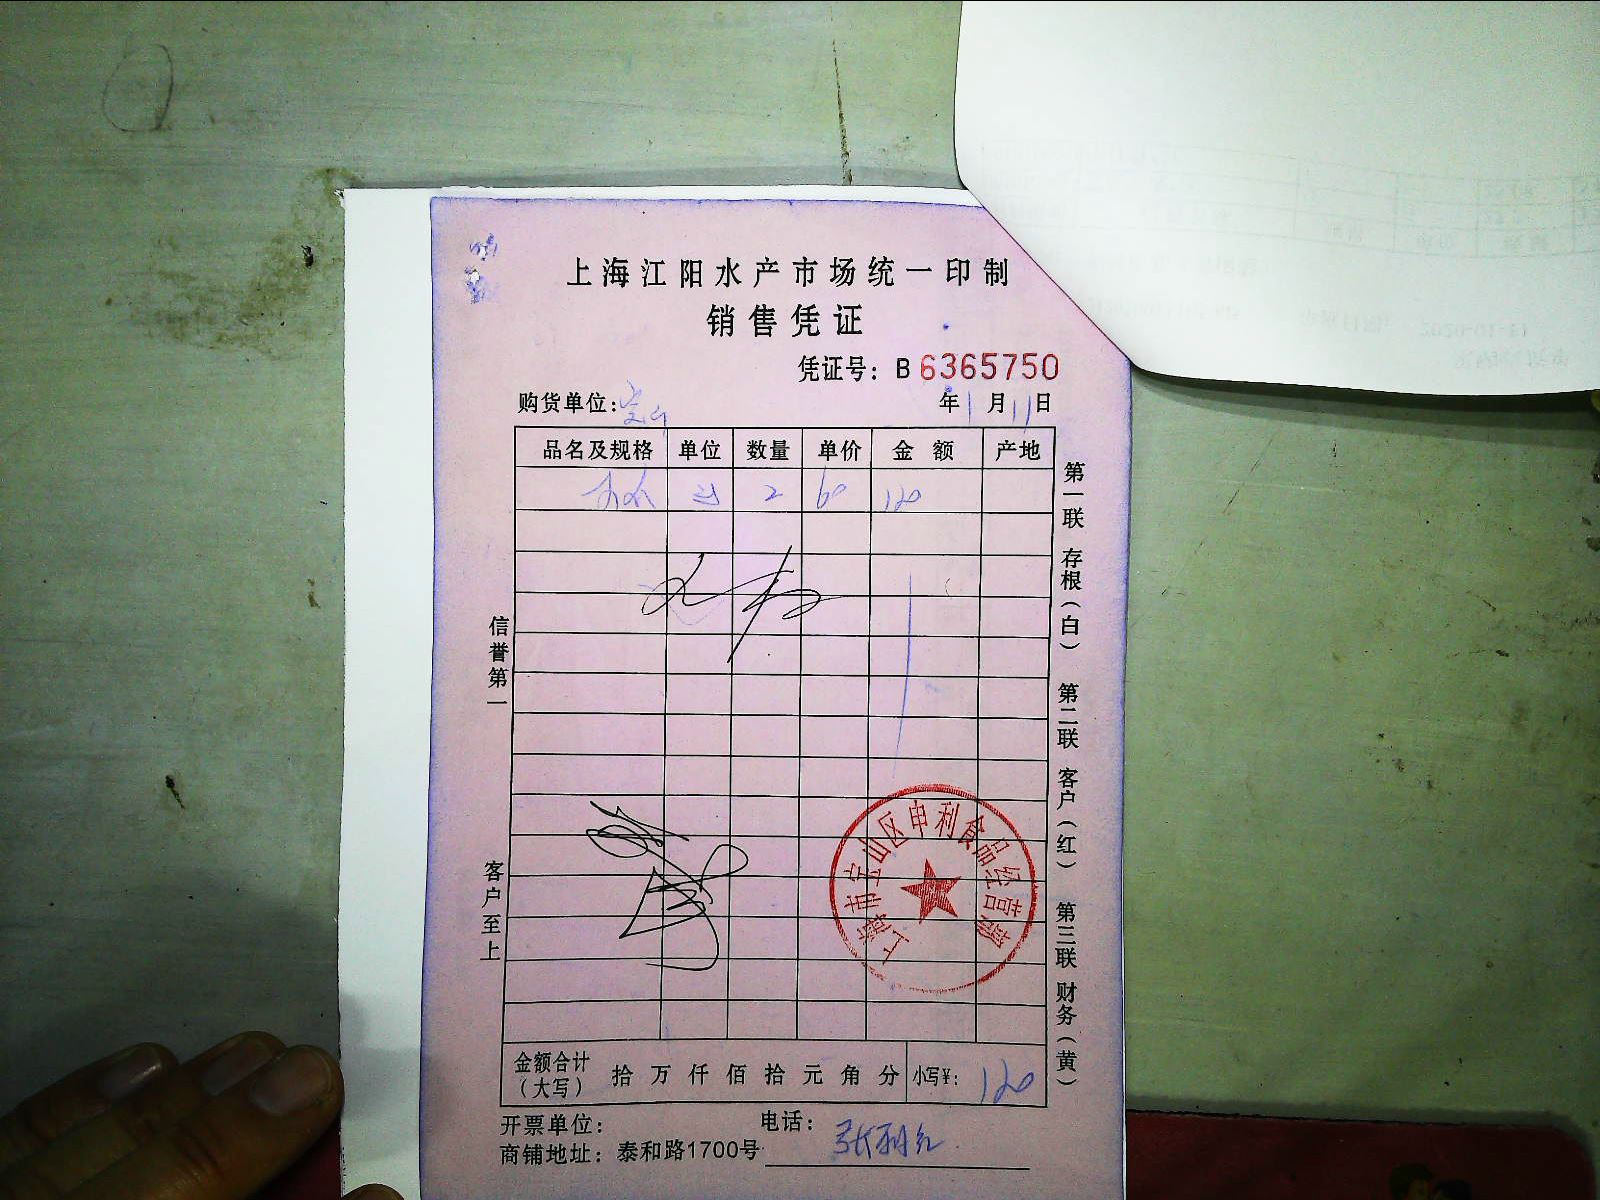 上海江阳水产市场统一印制
销售凭证
凭证号：B 6365750
购货单位：宝山 年1月11日
品名及规格 单位 数量 单价 金 额 产地
2 60 120
信誉第一
客户至上
第一联 存根（白） 第二联 客户（红） 第三联 财务（黄）
上海市宝山区申利食品经营部
金额合计（大写） 拾 万 仟 佰 拾 元 角 分 小写¥：120
开票单位： 电话：
商铺地址：泰和路1700号 张利红